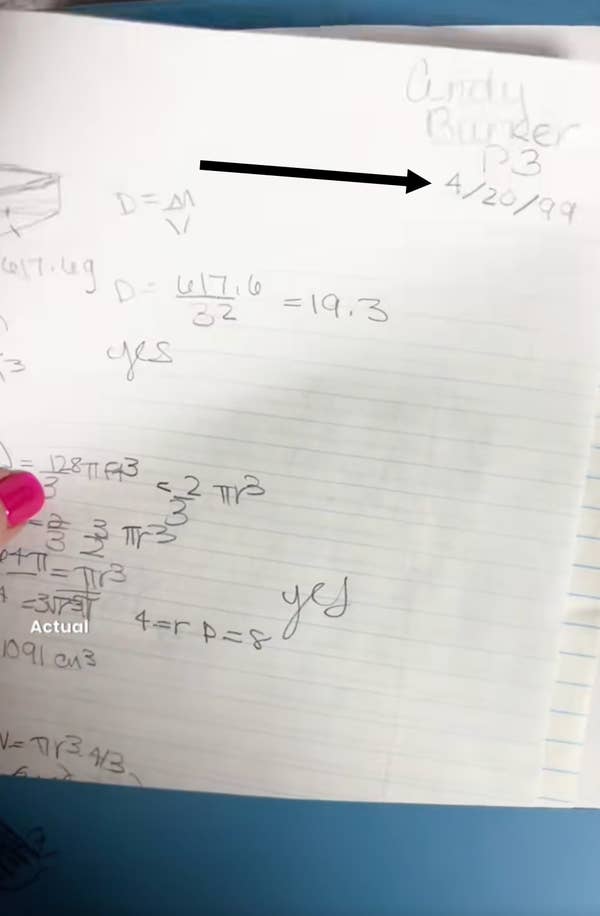 Andy
Bunker
P3
4/20/99
D = M/V
617.6g
D = 617.6/32 = 19.3
yes
3
= 128π ft3/3 = 2/3 πr3
= 2/3 3/2 πr3
= πr3
Actual
4=r D=8
yes
1091 cm3
V = πr3 4/3